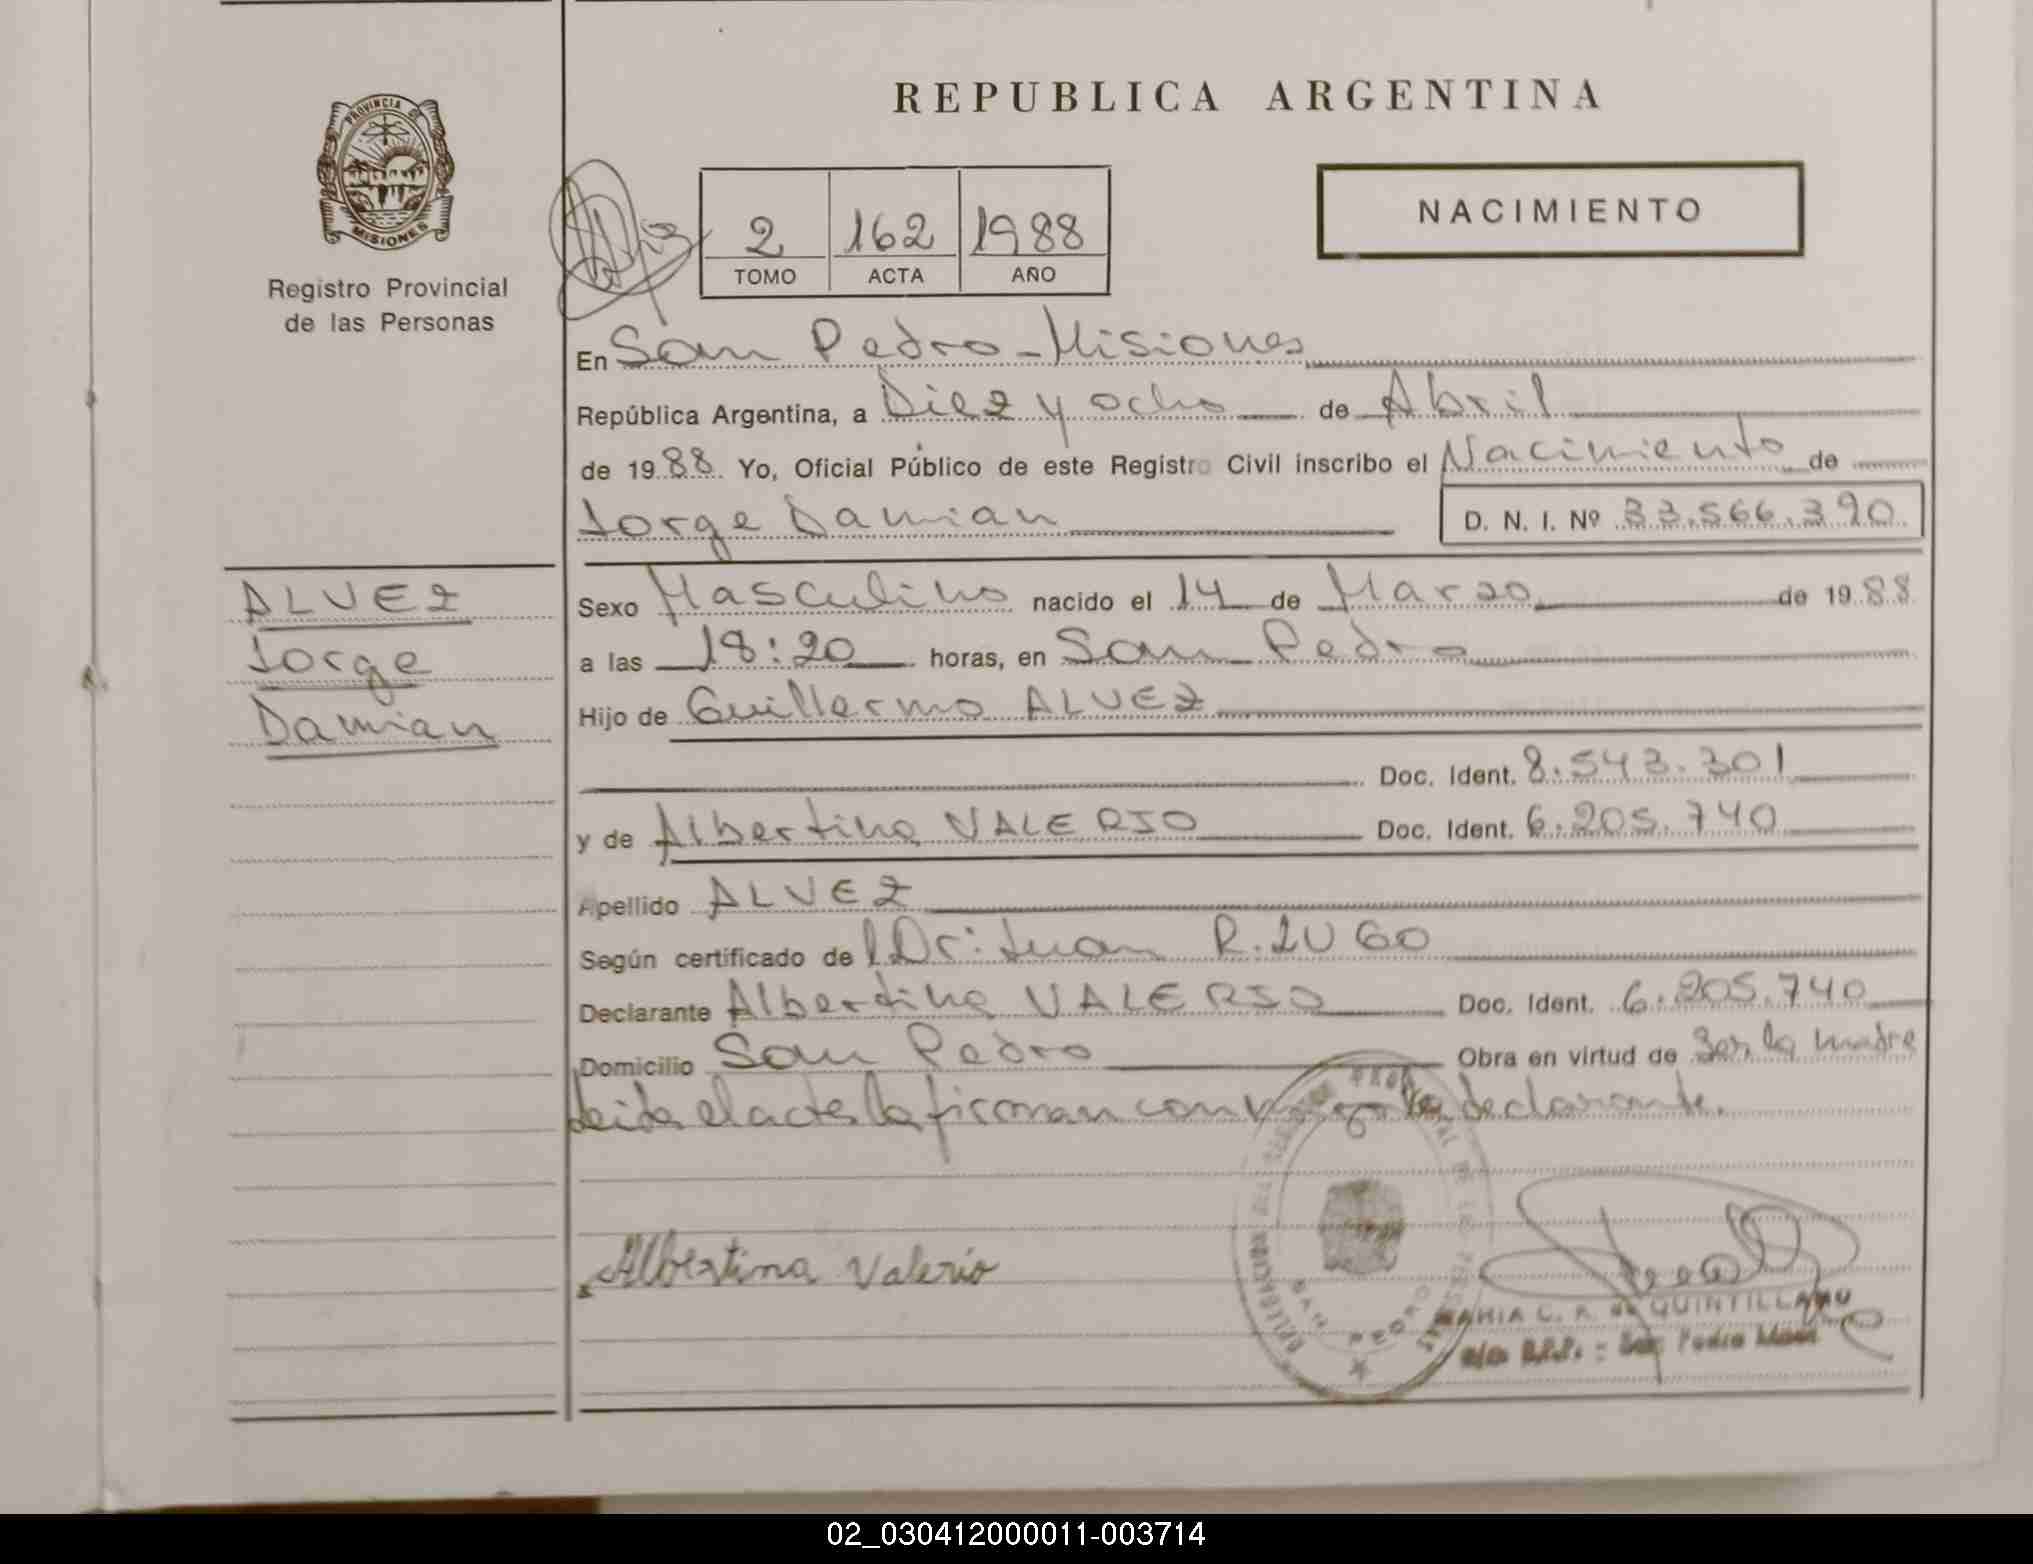 REPUBLICA ARGENTINA
PROVINCIA DE
MISIONES
Registro Provincial
de las Personas
NACIMIENTO
2 162 1988
TOMO ACTA AÑO
En San Pedro - Misiones
República Argentina, a Diez y ocho de Abril
de 1988. Yo, Oficial Público de este Registro Civil inscribo el Nacimiento de
Jorge Damian D. N. I. Nº 33.566.390
ALVEZ
Jorge
Damian
Sexo Masculino nacido el 14 de Marzo de 1988
a las 18:20 horas, en San Pedro
Hijo de Guillermo ALVEZ
Doc. Ident. 8.543.301
y de Albertina VALERIO Doc. Ident. 6.205.740
Apellido ALVEZ
Según certificado de l Dr: Juan R. LUGO
Declarante Albertina VALERIO Doc. Ident. 6.205.740
Domicilio San Pedro Obra en virtud de Ser la madre
Leida el acta la firman conmigo la declarante.
Albertina Valerio
SAN PEDRO
MARIA C. R. de QUINTILLANO
San Pedro
02_030412000011-003714